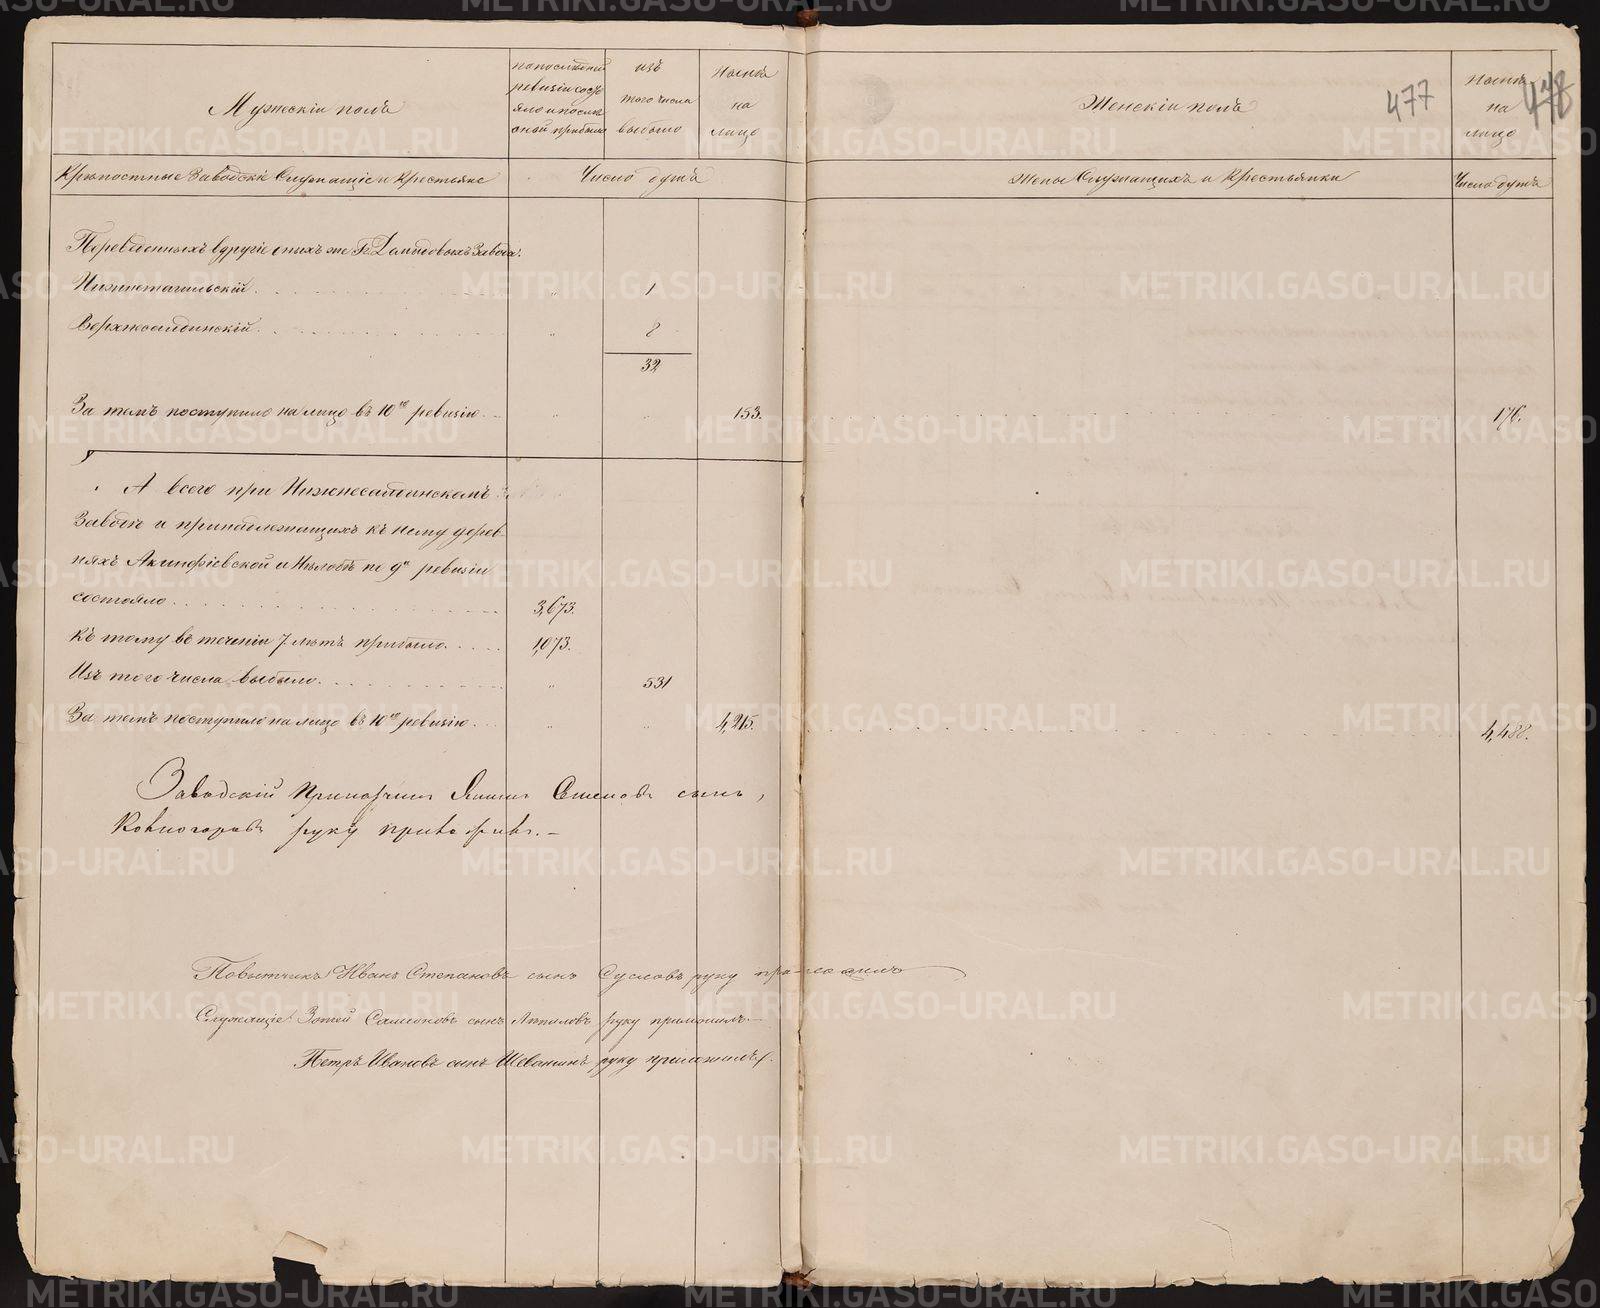 Мужескій полъ
попослѣдней
ревизіи состо
яло и после
оной прибыло
изъ
того числа
выбыло
Ныне
на
лицо
Женскій полъ
477
478
Ныне
на
лицо
Крѣпостные Заводскіе Служащіе и Крестьяне
Число душъ
Жены Служащихъ и Крестьянки
Число душъ
Переведенныхъ вдругіе оныхъ же Гг. Демидовыхъ Завода:
Нижнетагильскій
1
Верхнесалдинскій
2
32
За темъ поступило на лицо въ 10ю ревизію
153.
176.
А всего при Нижнесалдинскомъ
Заводѣ и принадлежащихъ къ нему дерев-
няхъ Акинфіевской и Нѣлобѣ по 9й ревизіи
состояло
3,673.
Къ тому въ теченіи 7 летъ прибыло
1,073.
Изъ того числа выбыло
531
За темъ поступило на лицо въ 10ю ревизію
4,215.
4,488.
Заводскій Прикащикъ сынъ,
руку приложилъ.
Повытчикъ Иванъ Степановъ сынъ Сусловъ руку приложилъ
Служащіе: Зотей Самсоновъ сынъ руку приложилъ
Петръ Ивановъ сынъ Шевакинъ руку приложилъ.
METRIKI.GASO-URAL.RU